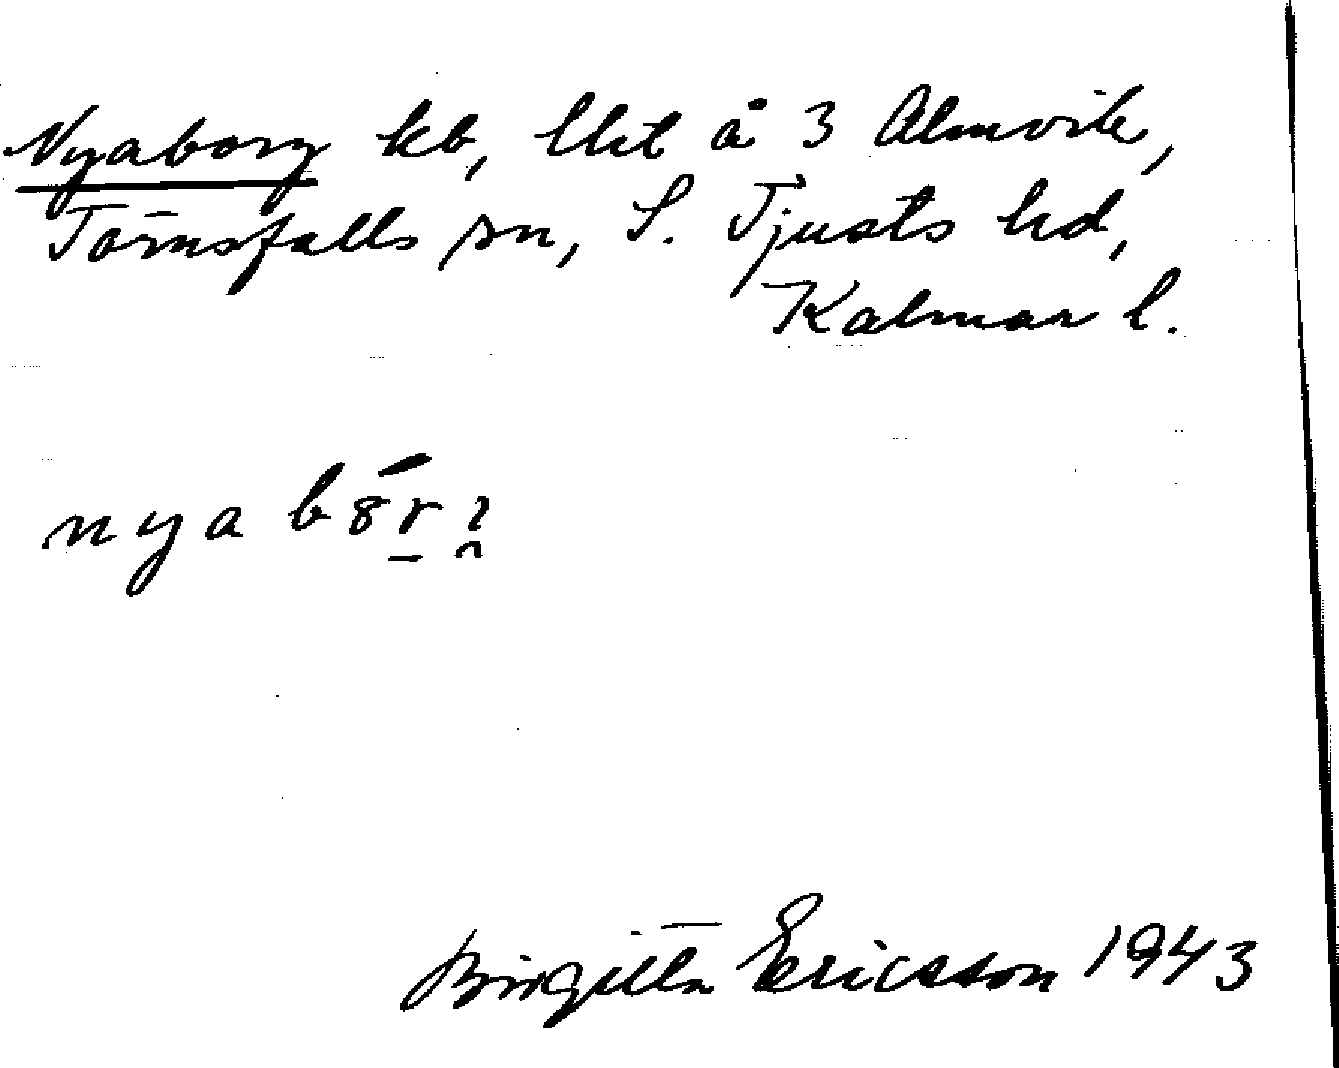 Nyaborg kb, lht å 3 Almvik,
Törnsfalls sn, S. Tjusts hd,
Kalmar l.
nya
Birgitta Ericsson 1943